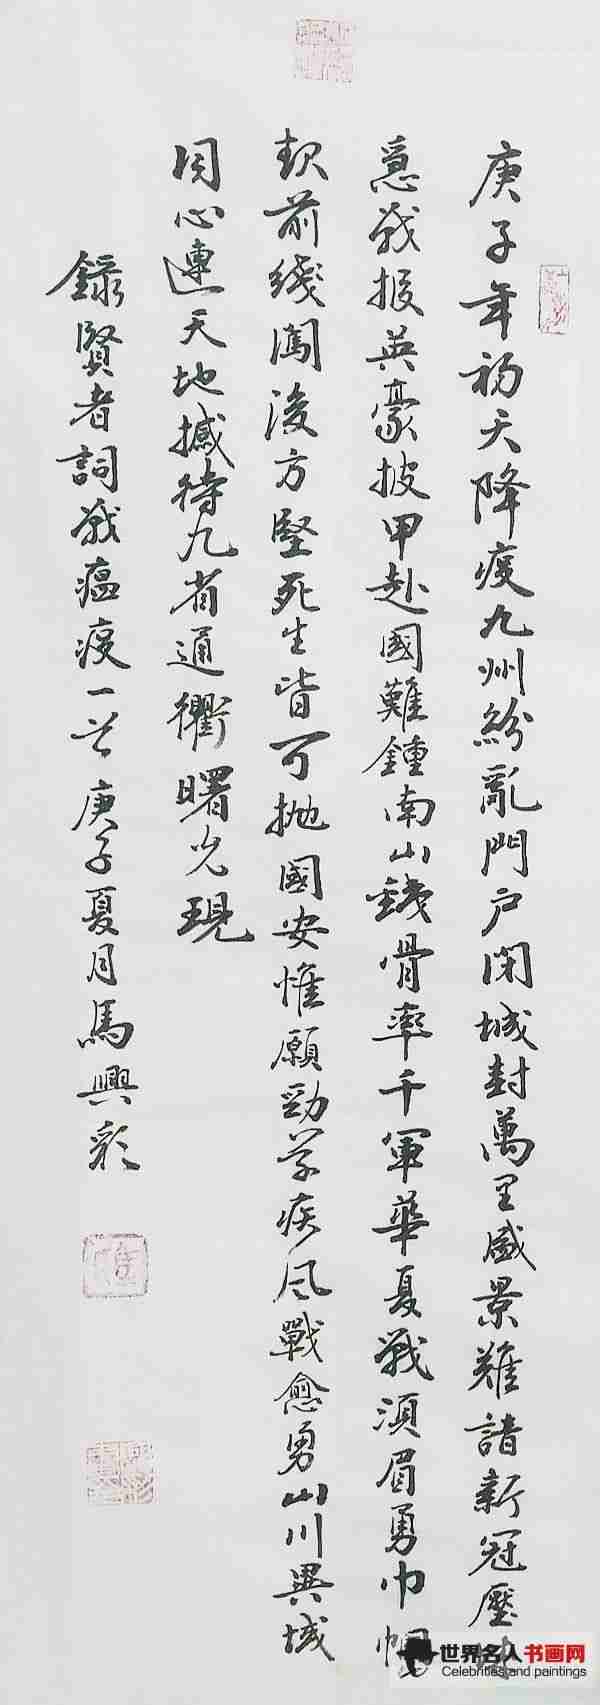 庚子年初天降疫九州紛亂門户閉城封萬里盛景難諳新冠壓
急戰报英豪披甲赴國難鍾南山鐵骨率千軍華夏戰須眉勇巾帼
前綫闖後方堅死生皆可抛國安惟願勁草疾风戰愈勇山川異域
同心連天地撼待九省通衢曙光現
錄賢者詞戰瘟疫一首庚子夏月馬興彩
世界名人书画网
Celebrities and paintings